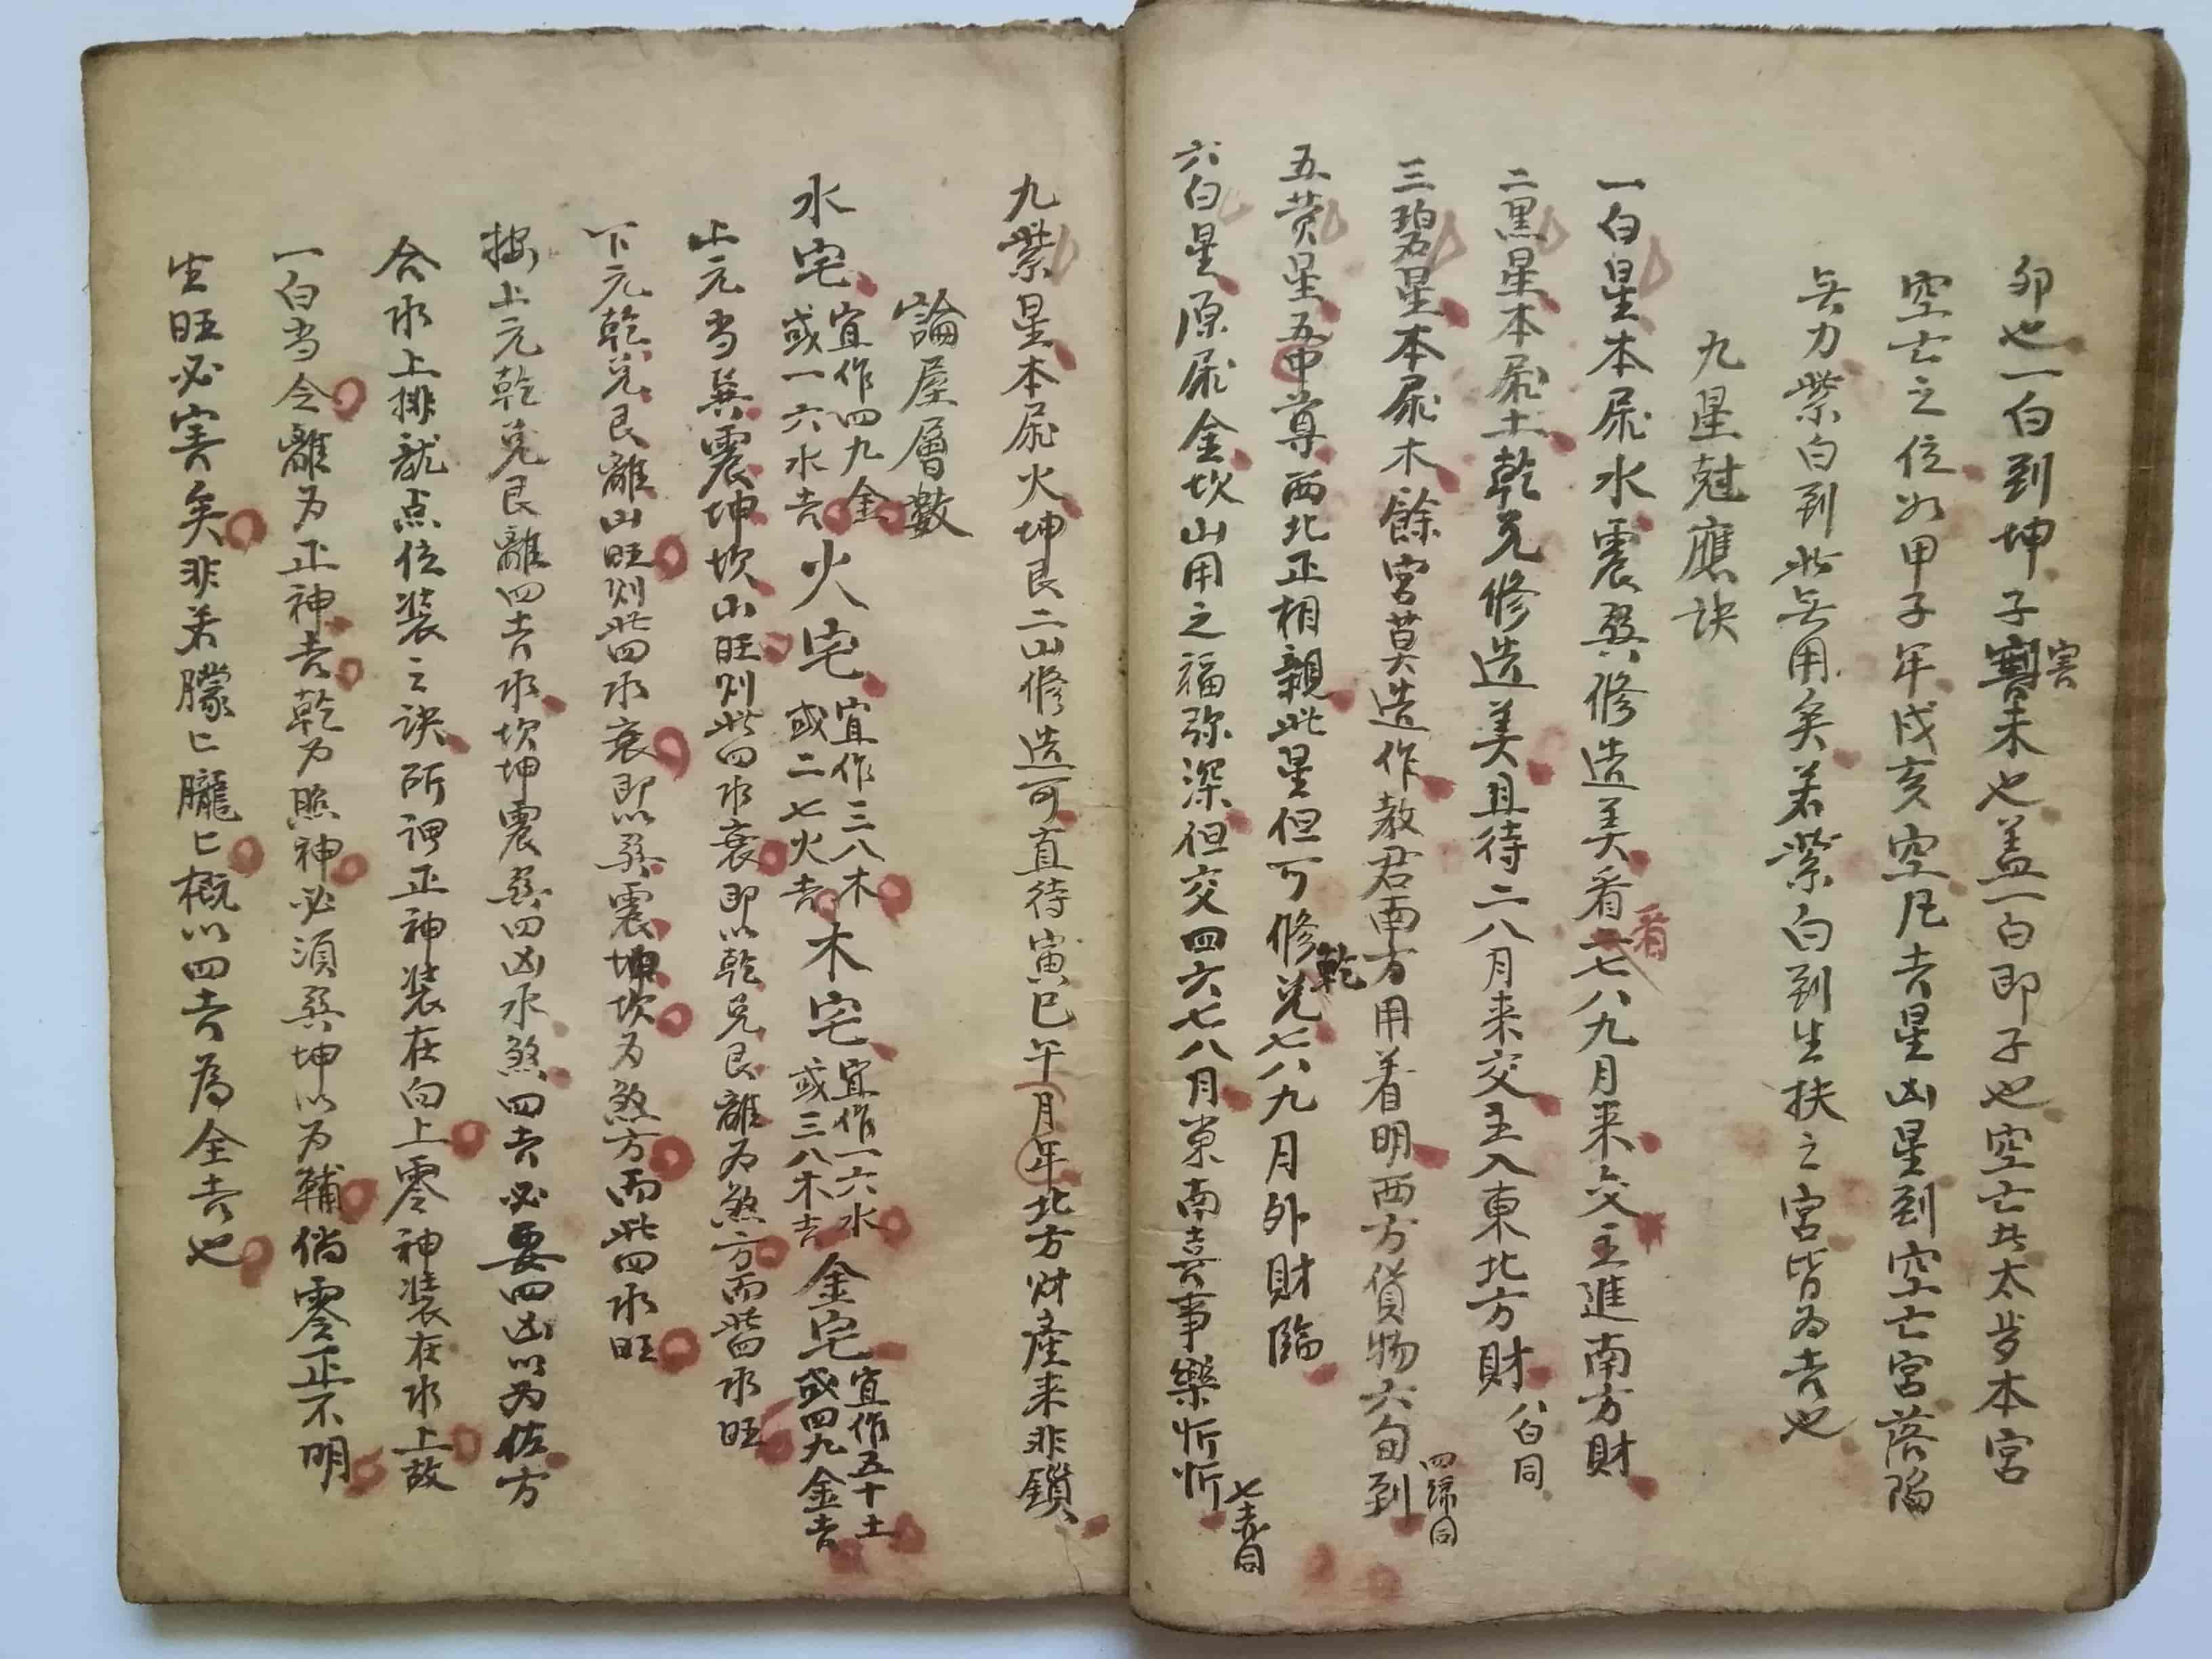 卯也一白到坤子害未也盖一白即子也空亡其太岁本宮
空亡之位如甲子年戌亥空凡吉星凶星到空亡宮落陷
無力紫白到此無用矣若紫白到生扶之宮皆为吉也
九星尅應訣
一白星本属水震巽修造美看七八九月来交立進南方財
二黑星本属土乾兑修造美且待二八月来交立入東北方財 八白同
三碧星本属木餘宮莫造作教君南方用着明西方貨物六旬到 四綠同
五黄星五中尊西北正相親此星但可修乾兑七八九月外財臨
六白星原属金坎山用之福弥深但交四六七八月東南喜事樂忻忻 七赤同
九紫星本属火坤艮二山修造可直待寅巳午年月北方財產来非鎖
論屋層數
水宅 宜作四九金 或一六水吉 火宅 宜作三八木 或二七火吉 木宅 宜作一六水 或三八木吉 金宅 宜作五十土 或四九金吉
上元当巽震坤坎山旺则此四水衰即以乾兑艮離为煞方而此四水旺
下元乾兑艮離山旺则此四水衰即以巽震坤坎为煞方而此四水旺
按上元乾兑艮離四吉水坎坤震巽四凶水煞四吉必要四凶以为佐方
合水上排龍点位装之訣所谓正神装在向上零神装在水上故
一白当令離为正神吉乾为照神必須巽坤以为輔倘零正不明
生旺必害矣非若朦匕朧匕概以四吉為全吉也